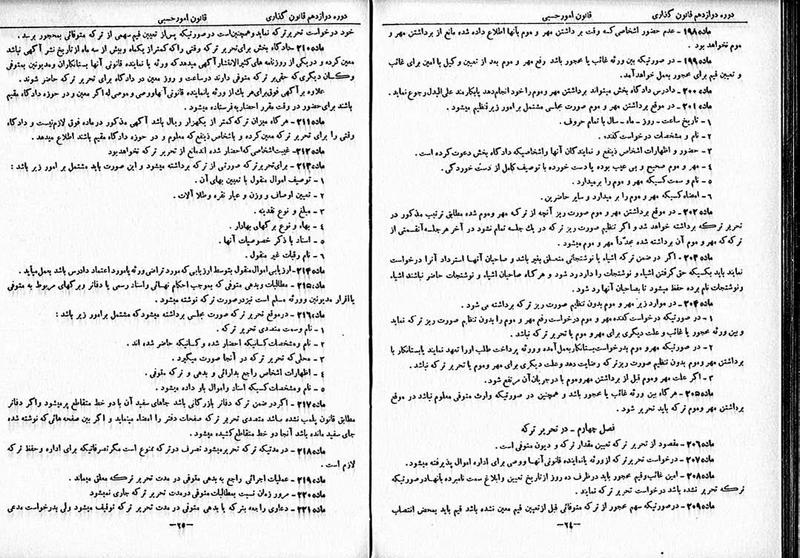 دوره دوازدهم قانون گذاری قانون امور حسبی
ماده ۱۹۸ - عدم حضور اشخاصی که وقت برداشتن مهر و موم بآنها اطلاع داده شده مانع از برداشتن مهر و
موم نخواهد بود .
ماده ۱۹۹ - در صورتیکه بین ورثه غائب یا محجور باشد رفع مهر و موم بعد از تعیین وکیل یا امین برای غائب
و تعیین قیم برای محجور بعمل خواهد آمد.
ماده ۲۰۰ - دادرس دادگاه بخش میتواند برداشتن مهر و موم را خود انجام دهد یا بکارمند علی البدل رجوع نماید .
ماده ۲۰۱ - در موقع برداشتن مهر و موم صورت مجلسی مشتمل بر امور زیر تنظیم میشود .
۱ - تاریخ ساعت - روز - ماه - سال با تمام حروف .
۲ - نام و مشخصات درخواست کننده .
۳ - حضور و اظهارات اشخاص ذینفع و نمایندگان آنها و اشخاصیکه دادگاه بخش دعوت کرده است .
۴ - مهر و موم صحیح و بی عیب بوده یا دست خورده با توصیف کامل از دست خوردگی .
۵ - نام و سمت کسیکه مهر و موم را برمیدارد .
۶ - امضاء کسیکه مهر و موم را بر میدارد و سایر حاضرین .
ماده ۲۰۲ - در موقع برداشتن مهر و موم صورت ریز آنچه از ترکه مهر و موم شده مطابق ترتیب مذکور در
تحریر ترکه برداشته خواهد شد و اگر تنظیم صورت ریز ترکه در یك جلسه تمام نشود در آخر هر جلسه آنقسمتی از
ترکه که مهر و موم آن برداشته شده مجدداً مهر و موم میشود .
ماده ۲۰۳ - اگر در ضمن ترکه اشیاء یا نوشتجاتی متعلق بغیر باشد و صاحبان آنها استرداد آنرا درخواست
نمایند باید بکسیکه حق گرفتن اشیاء و نوشتجات را دارد رد شود و هرگاه صاحبان اشیاء و نوشتجات حاضر نباشند اشیاء
ونوشتجات نام برده حفظ میشود تا بصاحبان آنها رد شود .
ماده ۲۰۴ - در موارد زیر مهر و موم بدون تنظیم صورت ریز ترکه برداشته می شود .
۱ - در صورتیکه درخواست کننده مهر و موم درخواست رفع مهر و موم را بدون تنظیم صورت ریز ترکه نماید
و بین ورثه محجور یا غائب و علت دیگری برای مهر و موم یا تحریر ترکه نباشد .
۲ - در صورتیکه مهر و موم بدرخواست بستانکار بعمل آمده و ورثه پرداخت طلب اورا تعهد نمایند یا بستانکار با
برداشتن مهر و موم بدون تنظیم صورت ریز ترکه رضایت دهد و علت دیگری برای مهر و موم یا تحریر ترکه نباشد .
۳ - اگر علت مهر و موم قبل از برداشتن مهر و موم یا در جریان آن مرتفع شود .
ماده ۲۰۵ - هرگاه بین ورثه غائب یا محجور باشد و همچنین در صورتیکه وارث متوفی معلوم نباشد در موقع
برداشتن مهر و موم ترکه باید تحریر شود .
فصل چهارم - در تحریر ترکه
ماده ۲۰۶ - مقصود از تحریر ترکه تعیین مقدار ترکه و دیون متوفی است .
ماده ۲۰۷ - درخواست تحریر ترکه از ورثه یا نماینده قانونی آنها و وصی برای اداره اموال پذیرفته میشود .
ماده ۲۰۸ - امین غائب وقیم محجور باید در ظرف ده روز از تاریخ تعیین و ابلاغ سمت نامبرده بآنها در صورتیکه
ترکه تحریر نشده باشد درخواست تحریر ترکه نمایند .
ماده ۲۰۹ - در صورتیکه سهم محجور از ترکه متوفائی قبل از تعیین قیم معین نشده باشد قیم باید بمحض انتصاب
-۲۴-
دوره دوازدهم قانون گذاری قانون امور حسبی
خود درخواست تحریر ترکه نماید و همچنین است در صورتیکه پس از تعیین قیم سهمی از ترکه متوفائی بمحجور برسد .
ماده ۲۱۰ - دادگاه بخش برای تحریر ترکه وقتی را که کمتر از یکماه وبیش از سه ماه از تاریخ نشر آگهی نباشد
معین کرده و در یکی از روزنامه های کثیرالانتشار آگهی میدهد که ورثه یا نماینده قانونی آنها بستانکاران و مدیونین بمتوفی
وکسان دیگری که حقی بر ترکه متوفی دارند در ساعت و روز معین در دادگاه برای تحریر ترکه حاضر شوند .
علاوه بر آگهی فوق برای هر یك از ورثه یا نماینده قانونی آنها و وصی و موصی له اگر معین و در حوزه دادگاه مقیم
باشند برای حضور در وقت مقرر احضاریه فرستاده میشود .
ماده ۲۱۱ - هرگاه میزان ترکه کمتر از یکهزار ریال باشد آگهی مذکور در ماده فوق لازم نیست و دادگاه
وقتی را برای تحریر ترکه معین کرده و باشخاص ذینفع که معلوم و در حوزه دادگاه مقیم باشند اطلاع میدهد .
ماده ۲۱۲ - غیبت اشخاصی که احضار شده اند مانع از تحریر ترکه نخواهد بود
ماده ۲۱۳ - برای تحریر ترکه صورتی از ترکه برداشته میشود و این صورت باید مشتمل بر امور زیر باشد :
۱ - توصیف اموال منقول با تعیین بهای آن .
۲ - تعیین اوصاف و وزن و عیار نقره وطلا آلات .
۳ - مبلغ و نوع نقدینه .
۴ - بهاء و نوع برگهای بهادار .
۵ - اسناد با ذکر خصوصیات آنها .
۶ - نام رقبات غیر منقول .
ماده ۲۱۴ - ارزیابی اموال منقول بتوسط ارزیابی که مورد تراضی ورثه یا مورد اعتماد دادرس باشد بعمل میاید .
ماده ۲۱۵ - مطالبات وبدهی متوفی که بموجب احکام نهائی واسناد رسمی یا دفاتر وبرگهای مربوط به متوفی
یا اقرار مدیونین و ورثه مسلم است نیز در صورت ترکه نوشته میشود .
ماده ۲۱۶ - در موقع تحریر ترکه صورت مجلسی برداشته میشود که مشتمل بر امور زیر باشد :
۱ - نام وسمت متصدی تحریر ترکه .
۲ - نام ومشخصات کسانیکه احضار شده و کسانیکه حاضر شده اند .
۳ - محلی که تحریر ترکه در آنجا صورت میگیرد .
۴ - اظهارات اشخاص راجع بدارائی و بدهی و ترکه متوفی .
۵ - نام ومشخصات کسیکه اسناد و اموال باو داده میشود .
ماده ۲۱۷ - اگر در ضمن ترکه دفاتر بازرگانی باشد جاهای سفید آن با دو خط متقاطع پر میشود واگر دفاتر
مطابق قانون پلمب نشده باشد متصدی تحریر ترکه صفحات دفتر را امضاء مینماید و اگر بین صفحه هائی که نوشته شده
جای سفید مانده باشد آنجا دو خط متقاطع کشیده میشود .
ماده ۲۱۸ - در مدتیکه ترکه تحریر میشود تصرف در ترکه ممنوع است مگر تصرفاتیکه برای اداره و حفظ ترکه
لازم است .
ماده ۲۱۹ - عملیات اجرائی راجع به بدهی متوفی در مدت تحریر ترکه معلق میماند .
ماده ۲۲۰ - مرور زمان نسبت بمطالبات متوفی در مدت تحریر ترکه جاری نمیشود
ماده ۲۲۱ - دعاوی راجعه بترکه یا بدهی متوفی در مدت تحریر ترکه توقیف میشود ولی بدرخواست مدعی
-۲۵-